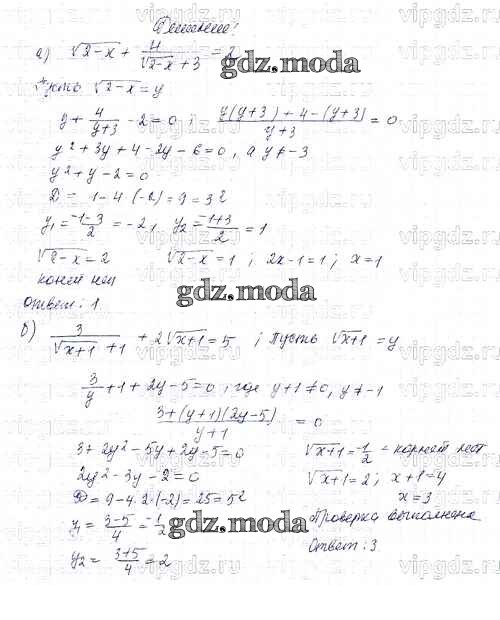 Решение:
а) √2-x + 4/(√2-x + 3) = 2
Пусть √2-x = y
y + 4/(y+3) - 2 = 0 ; (y(y+3) + 4 - (y+3))/(y+3) = 0
y² + 3y + 4 - 2y - 6 = 0, а y ≠ -3
y² + y - 2 = 0
D = 1 - 4·(-2) = 9 = 3²
y₁ = (-1-3)/2 = -2, y₂ = (-1+3)/2 = 1
√2-x = 2 √2-x = 1 ; 2x-1=1 ; x=1
корней нет
Ответ: 1.
б) 3/(√x+1 + 1) + 2√x+1 = 5 ; пусть √x+1 = y
3/y + 1 + 2y - 5 = 0 ; где y+1 ≠ 0, y ≠ -1
(3+(y+1)(2y-5))/(y+1) = 0
3 + 2y² - 5y + 2y - 5 = 0 √x+1 = -1/2 - корней нет
2y² - 3y - 2 = 0 √x+1 = 2 ; x+1=4
D = 9 - 4·2·(-2) = 25 = 5² x = 3
y₁ = (3-5)/4 = -1/2 Проверка выполнена
y₂ = (3+5)/4 = 2 Ответ: 3
gdz.moda
gdz.moda
gdz.moda
vipgdz.ru